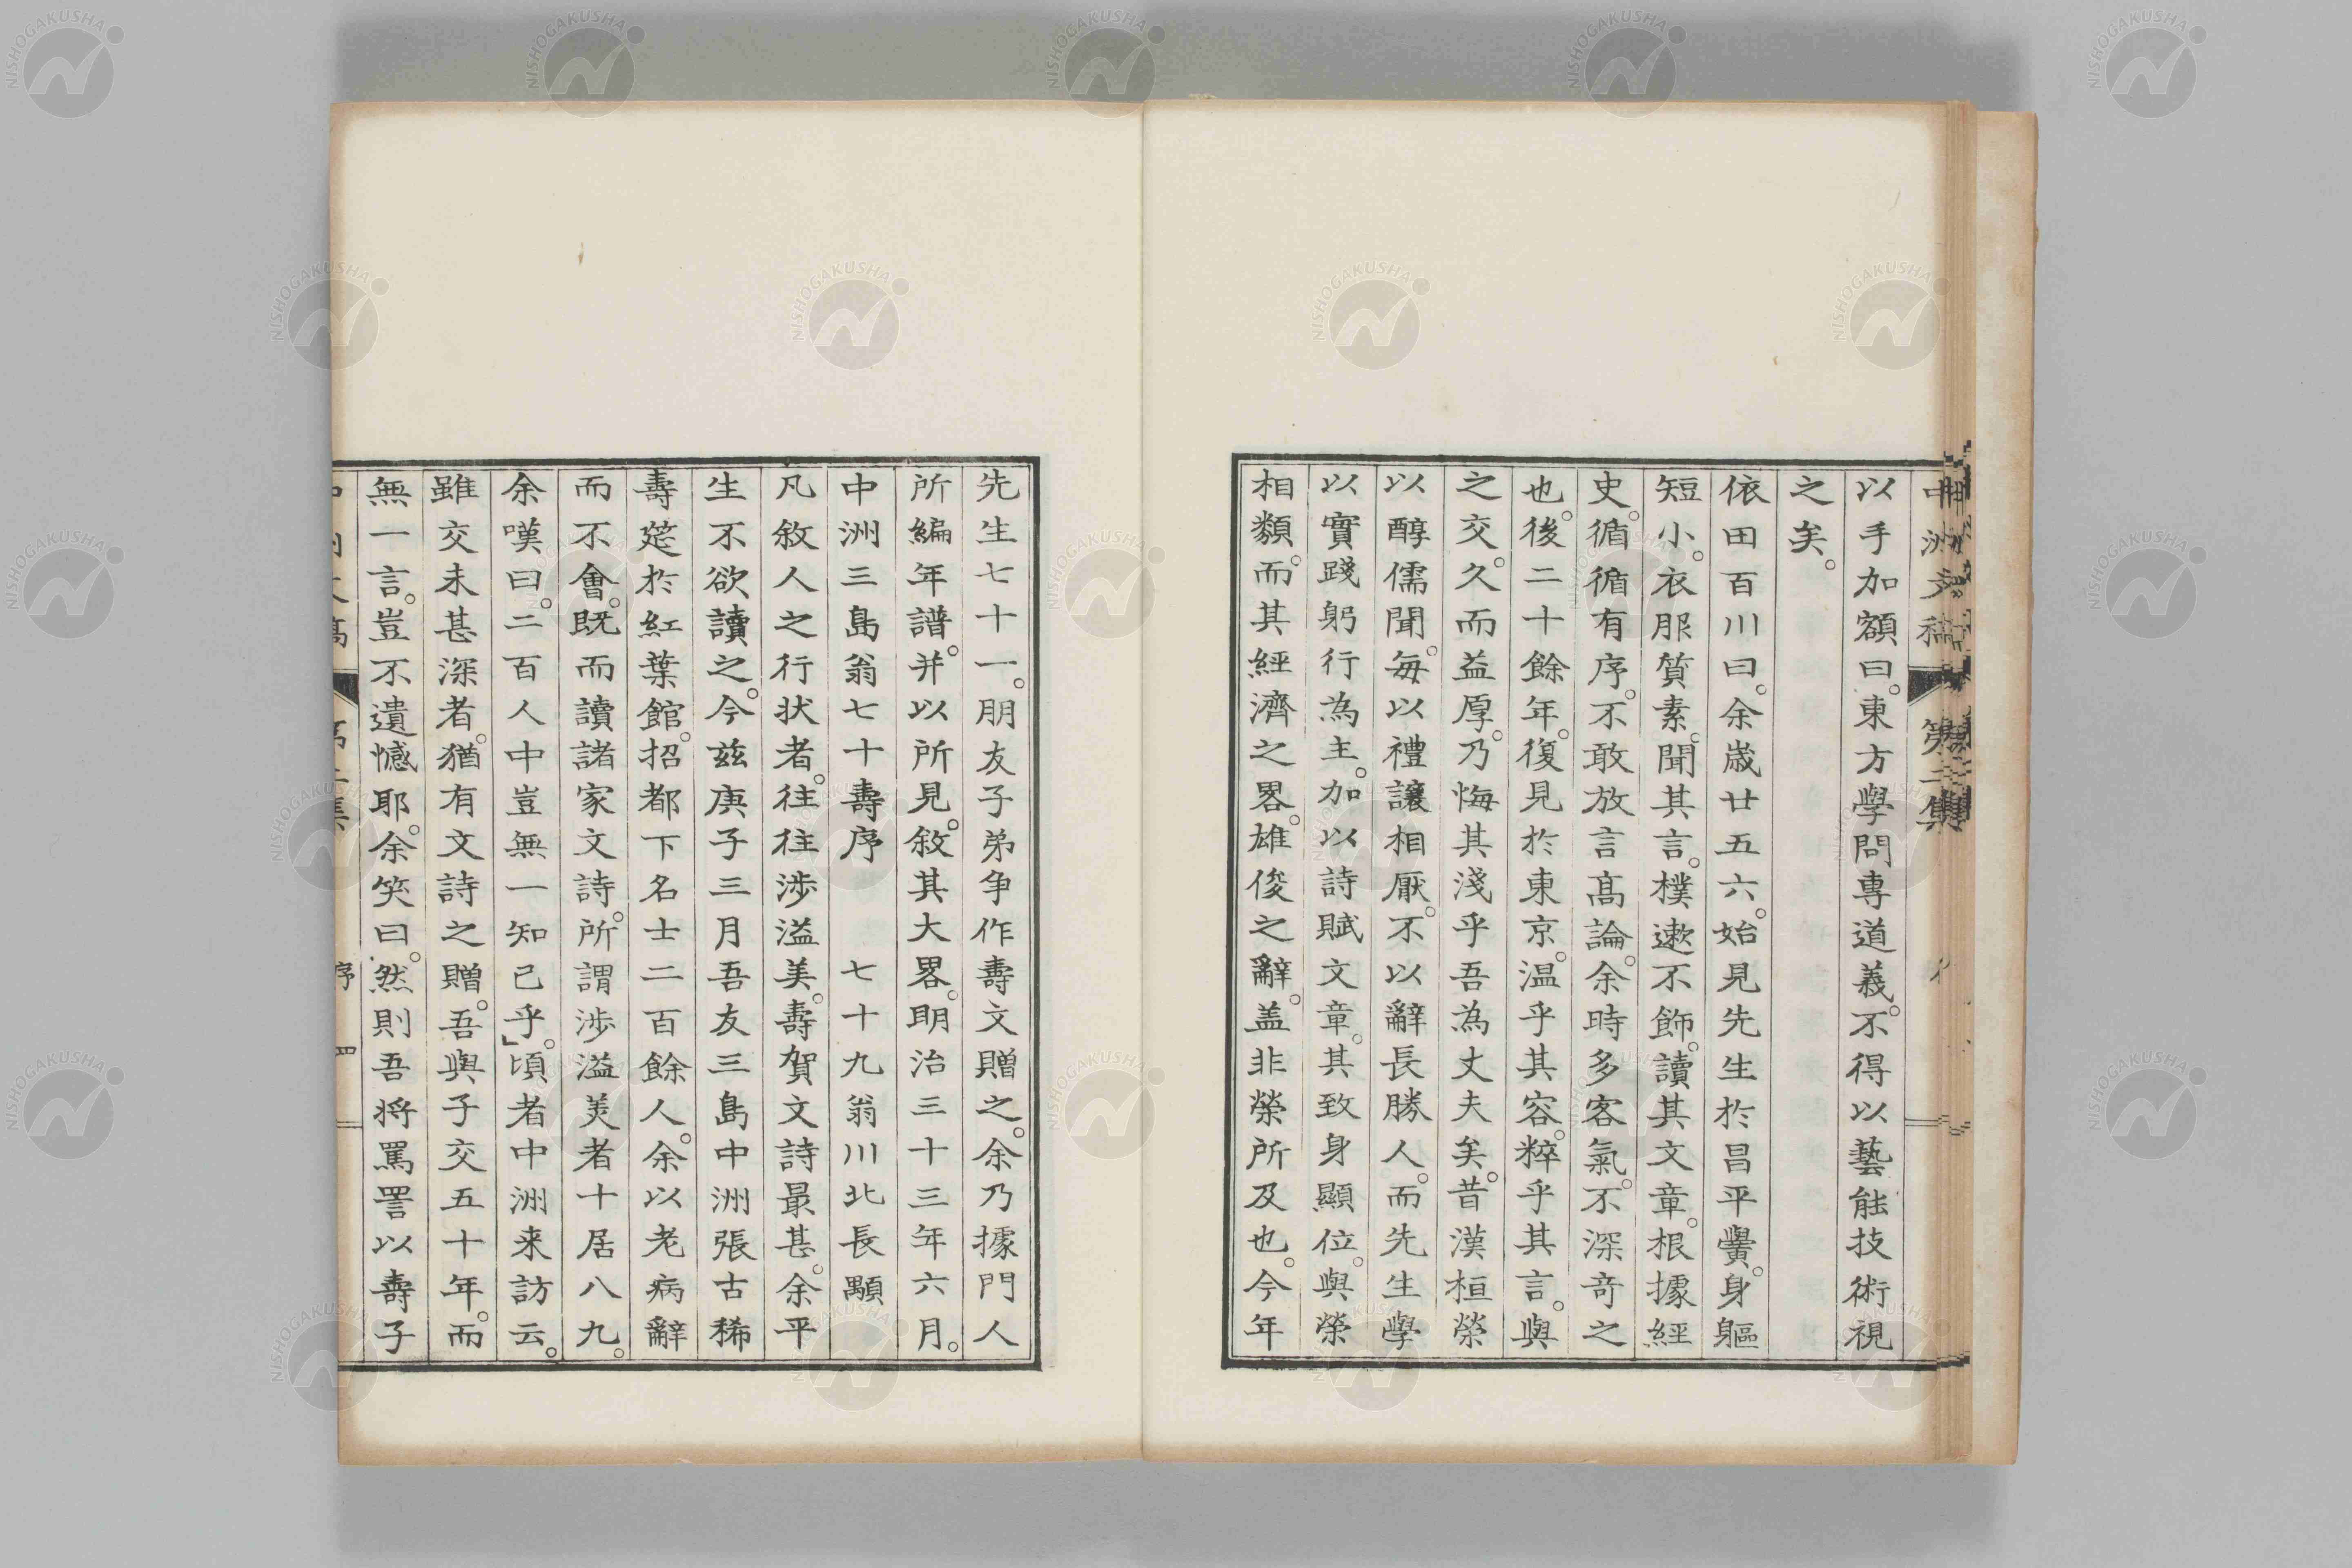 中洲文稿 第二集
以手加額曰。東方學問專道義。不得以藝能技術視
之矣。
依田百川曰。余歲廿五六。始見先生於昌平黌。身軀
短小。衣服質素。聞其言。樸遬不飾。讀其文章。根據經
史。循循有序。不敢放言高論。余時多客氣。不深奇之
也。後二十餘年。復見於東京。温乎其容。粹乎其言。與
之交。久而益厚。乃悔其淺乎吾為丈夫矣。昔漢桓榮
以醇儒聞。每以禮讓相厭。不以辭長勝人。而先生學
以實踐躬行為主。加以詩賦文章。其致身顯位。與榮
相類。而其經濟之畧。雄俊之辭。盖非榮所及也。今年
先生七十一。朋友子弟争作壽文贈之。余乃據門人
所編年譜。并以所見。敘其大畧。明治三十三年六月。
中洲三島翁七十壽序 七十九翁川北長顒
凡敘人之行状者。往往涉溢美。壽賀文詩最甚。余平
生不欲讀之。今茲庚子三月吾友三島中洲張古稀
壽莚於紅葉館。招都下名士二百餘人。余以老病辭
而不會。既而讀諸家文詩。所謂涉溢美者十居八九。
余嘆曰。二百人中豈無一知己乎。」頃者中洲来訪云。
雖交未甚深者。猶有文詩之贈。吾與子交五十年。而
無一言。豈不遺憾耶。余笑曰。然則吾将罵詈以壽子
序 四